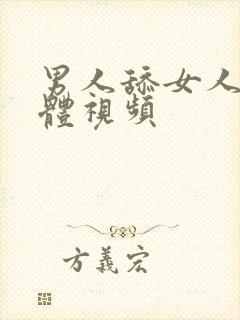 男人舔女人
體視頻
方義宏